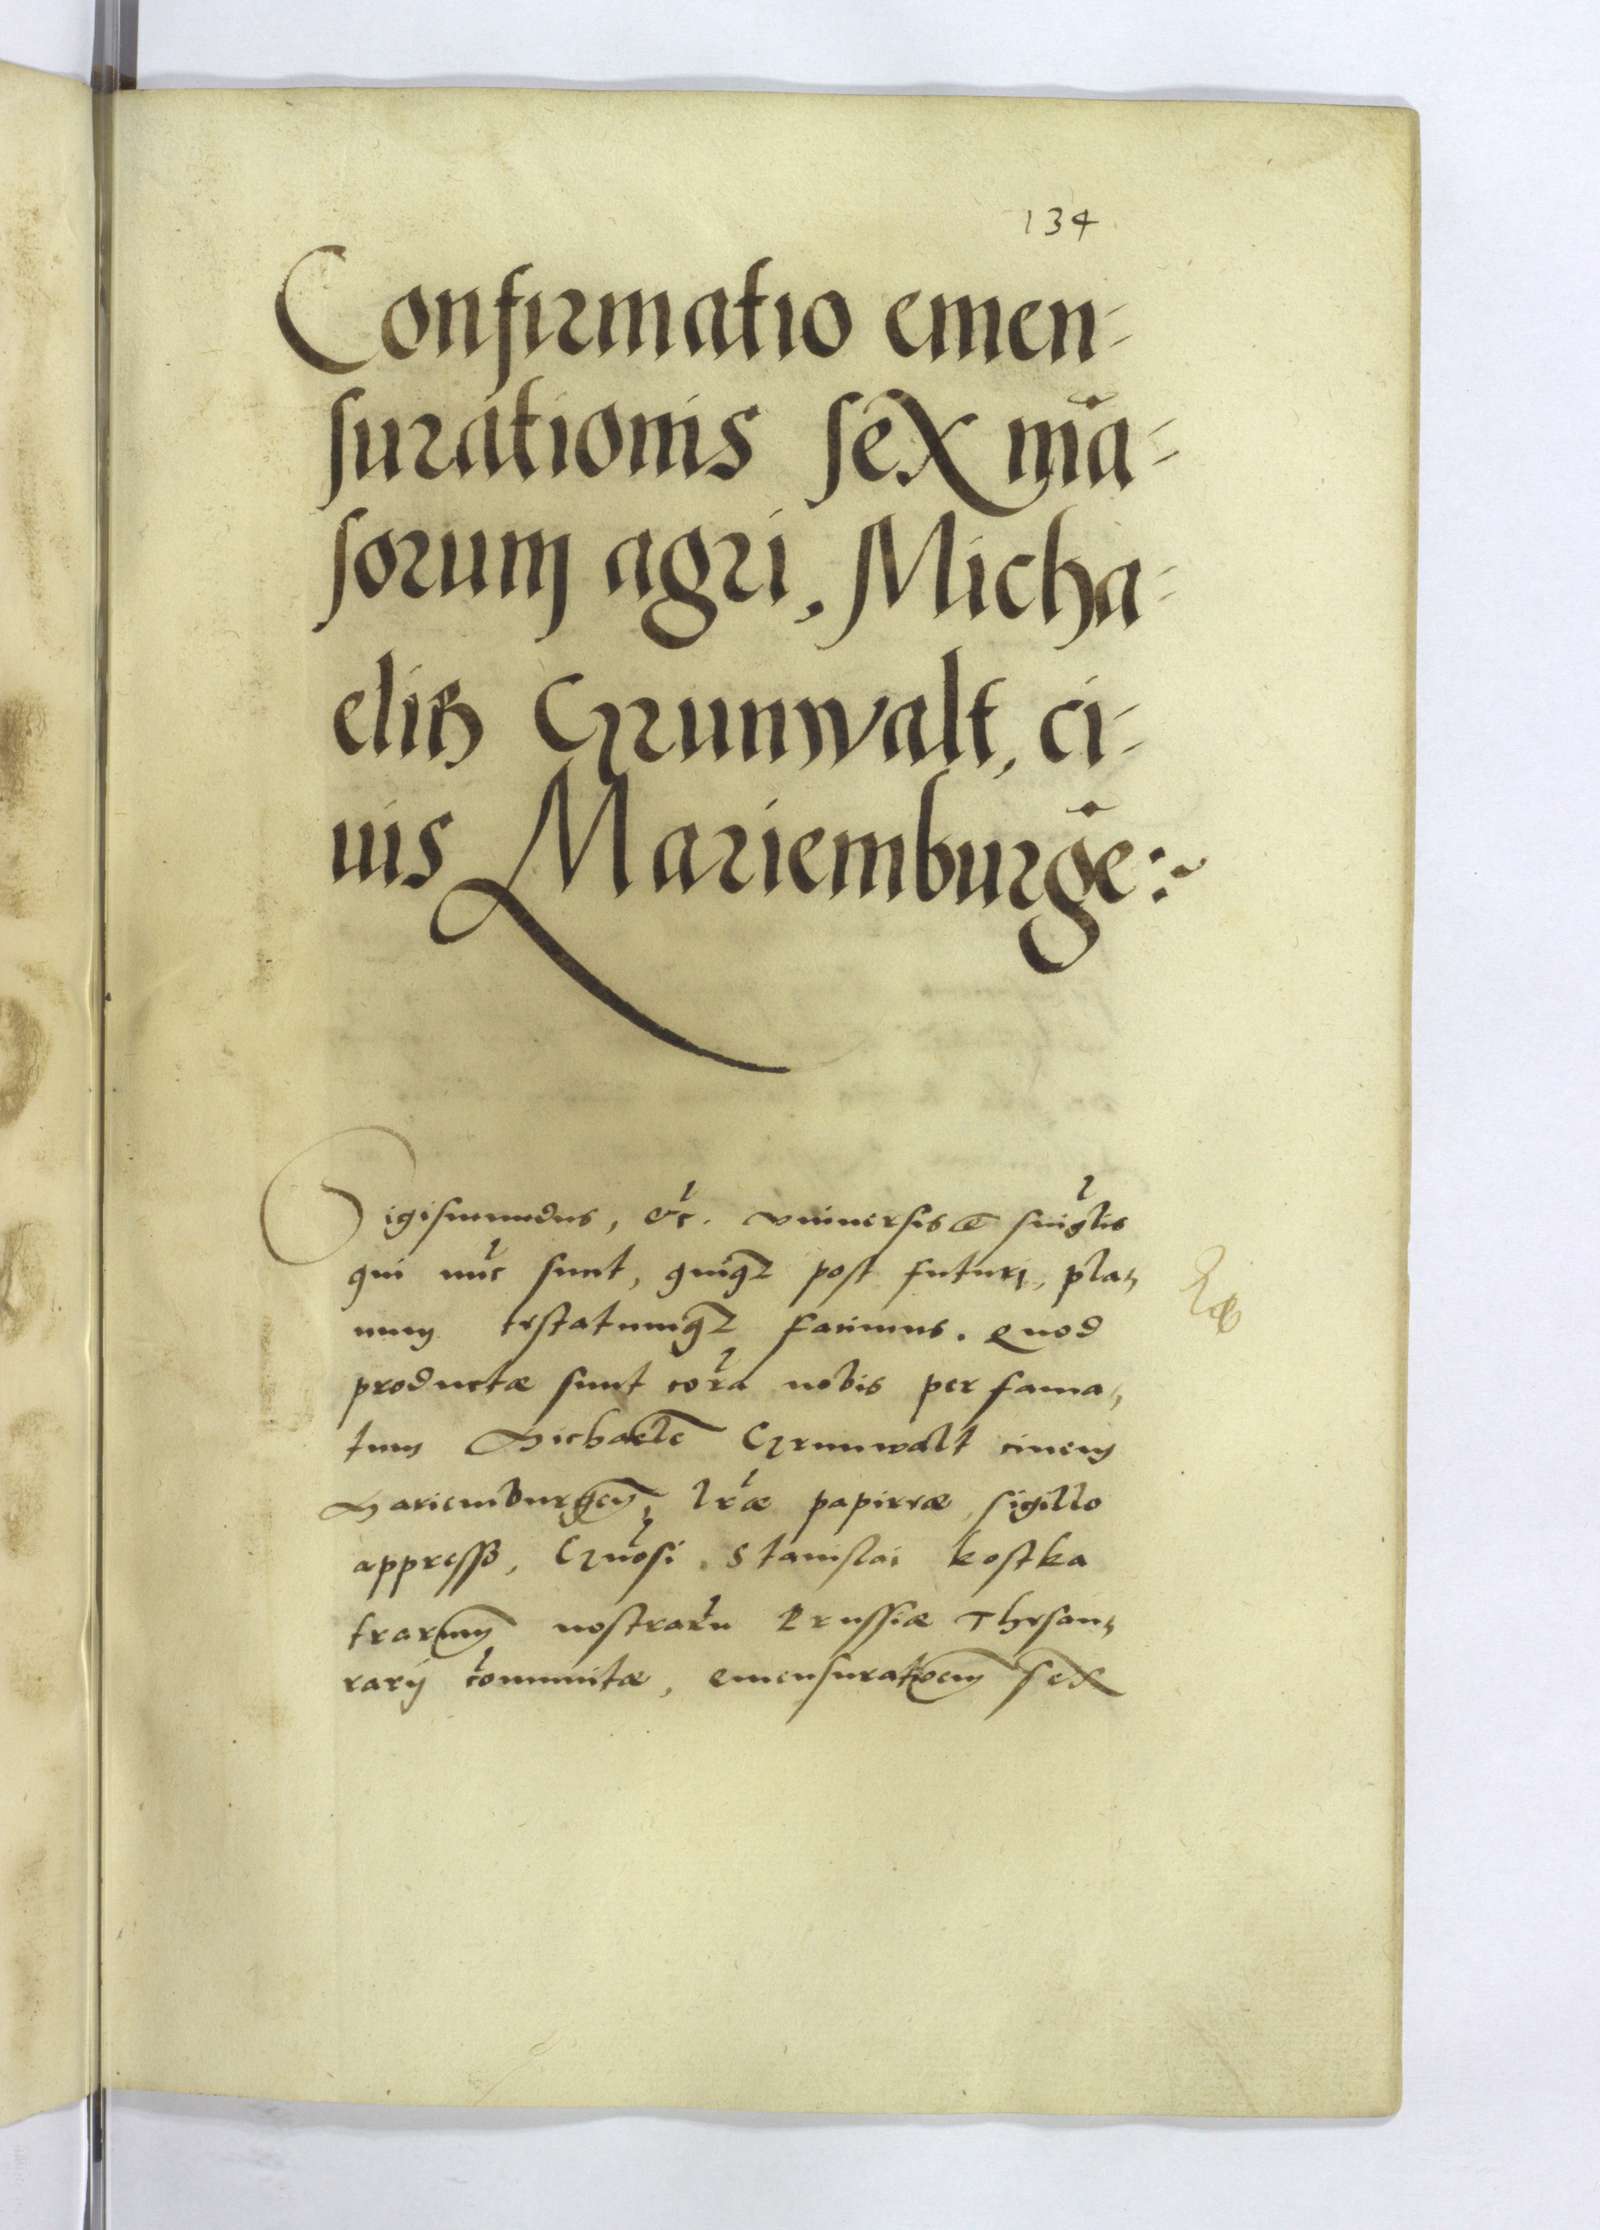 134
Confirmatio emen-
surationis sex mā-
sorum agri, Micha-
elis Grunwalt, ci-
uis Mariemburgē:~
Sigismundus, &c. vniuersis et singłis
qui nūc sunt, quiqꝫ post futuri, pla-
num testatumqꝫ facimus. Quod
productæ sunt corā nobis per fama-
tum Michaelē Grunwalt ciuem
Mariemburgeñ, lr̃æ papireæ sigillo
appresso, Gñosi Stanislai Kostka
terrarum nostrarū Prussiæ Thesau-
rarij cōmunitæ, emensurationem sex